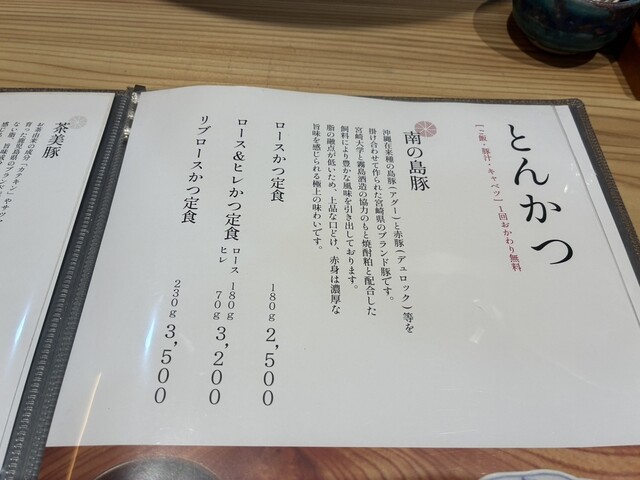 とんかつ
【ご飯・豚汁・キャベツ】1回おかわり無料
南の島豚
沖縄在来種の島豚(アグー)と赤豚(デュロック)等を
掛け合わせて作られた宮崎県のブランド豚です。
宮崎大学と霧島酒造の協力のもと焼酎粕と配合した
飼料により豊かな風味を引き出しております。
脂の融点が低いため、上品な口どけ、赤身は濃厚な
旨味を感じられる極上の味わいです。
ロースかつ定食 180g 2,500
ロース&ヒレかつ定食 ロース 180g ヒレ 70g 3,200
リブロースかつ定食 230g 3,500
茶美豚
お茶由来の成分「カテキン」やサツ
育った鹿児島県のブランド
ない脂、旨味成
感じる